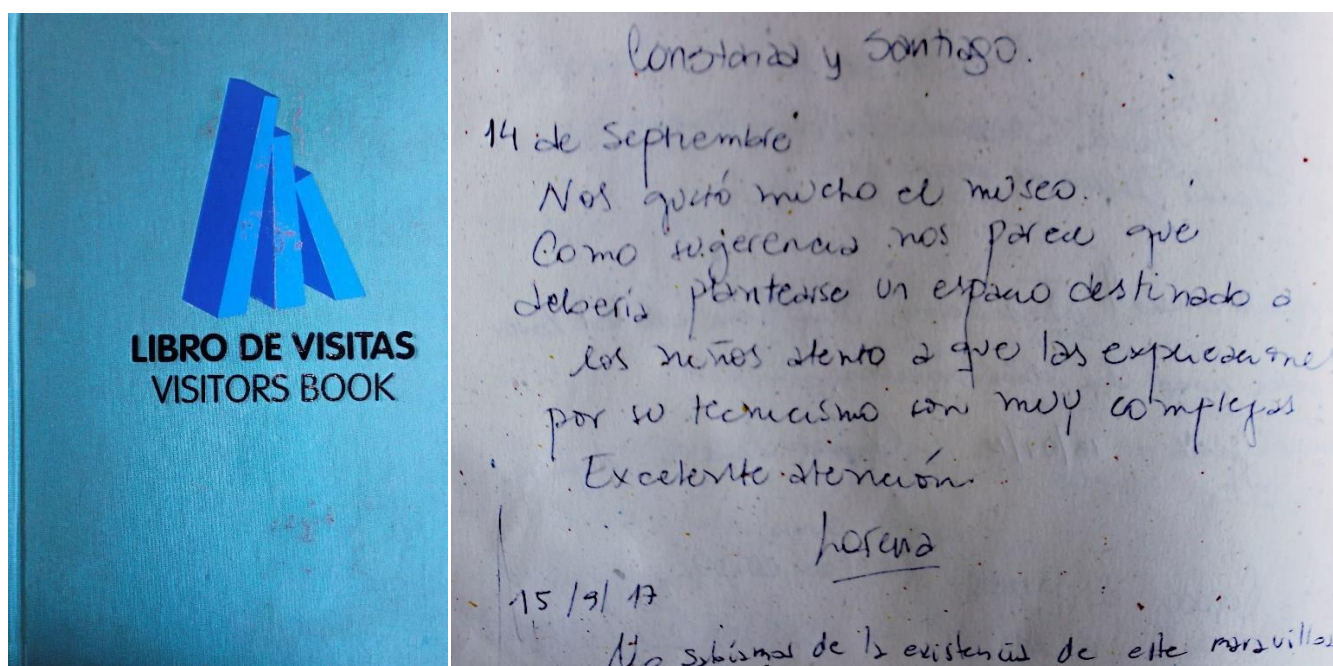 LIBRO DE VISITAS
VISITORS BOOK
Constanza y Santiago.
14 de Septiembre
Nos gustó mucho el museo.
Como sugerencia nos parece que
debería plantearse un espacio destinado a
los niños atento a que las explicaciones
por su tecnicismo son muy complejas
Excelente atención.
Lorena
15/9/17
No sabíamos de la existencia de este maravillos